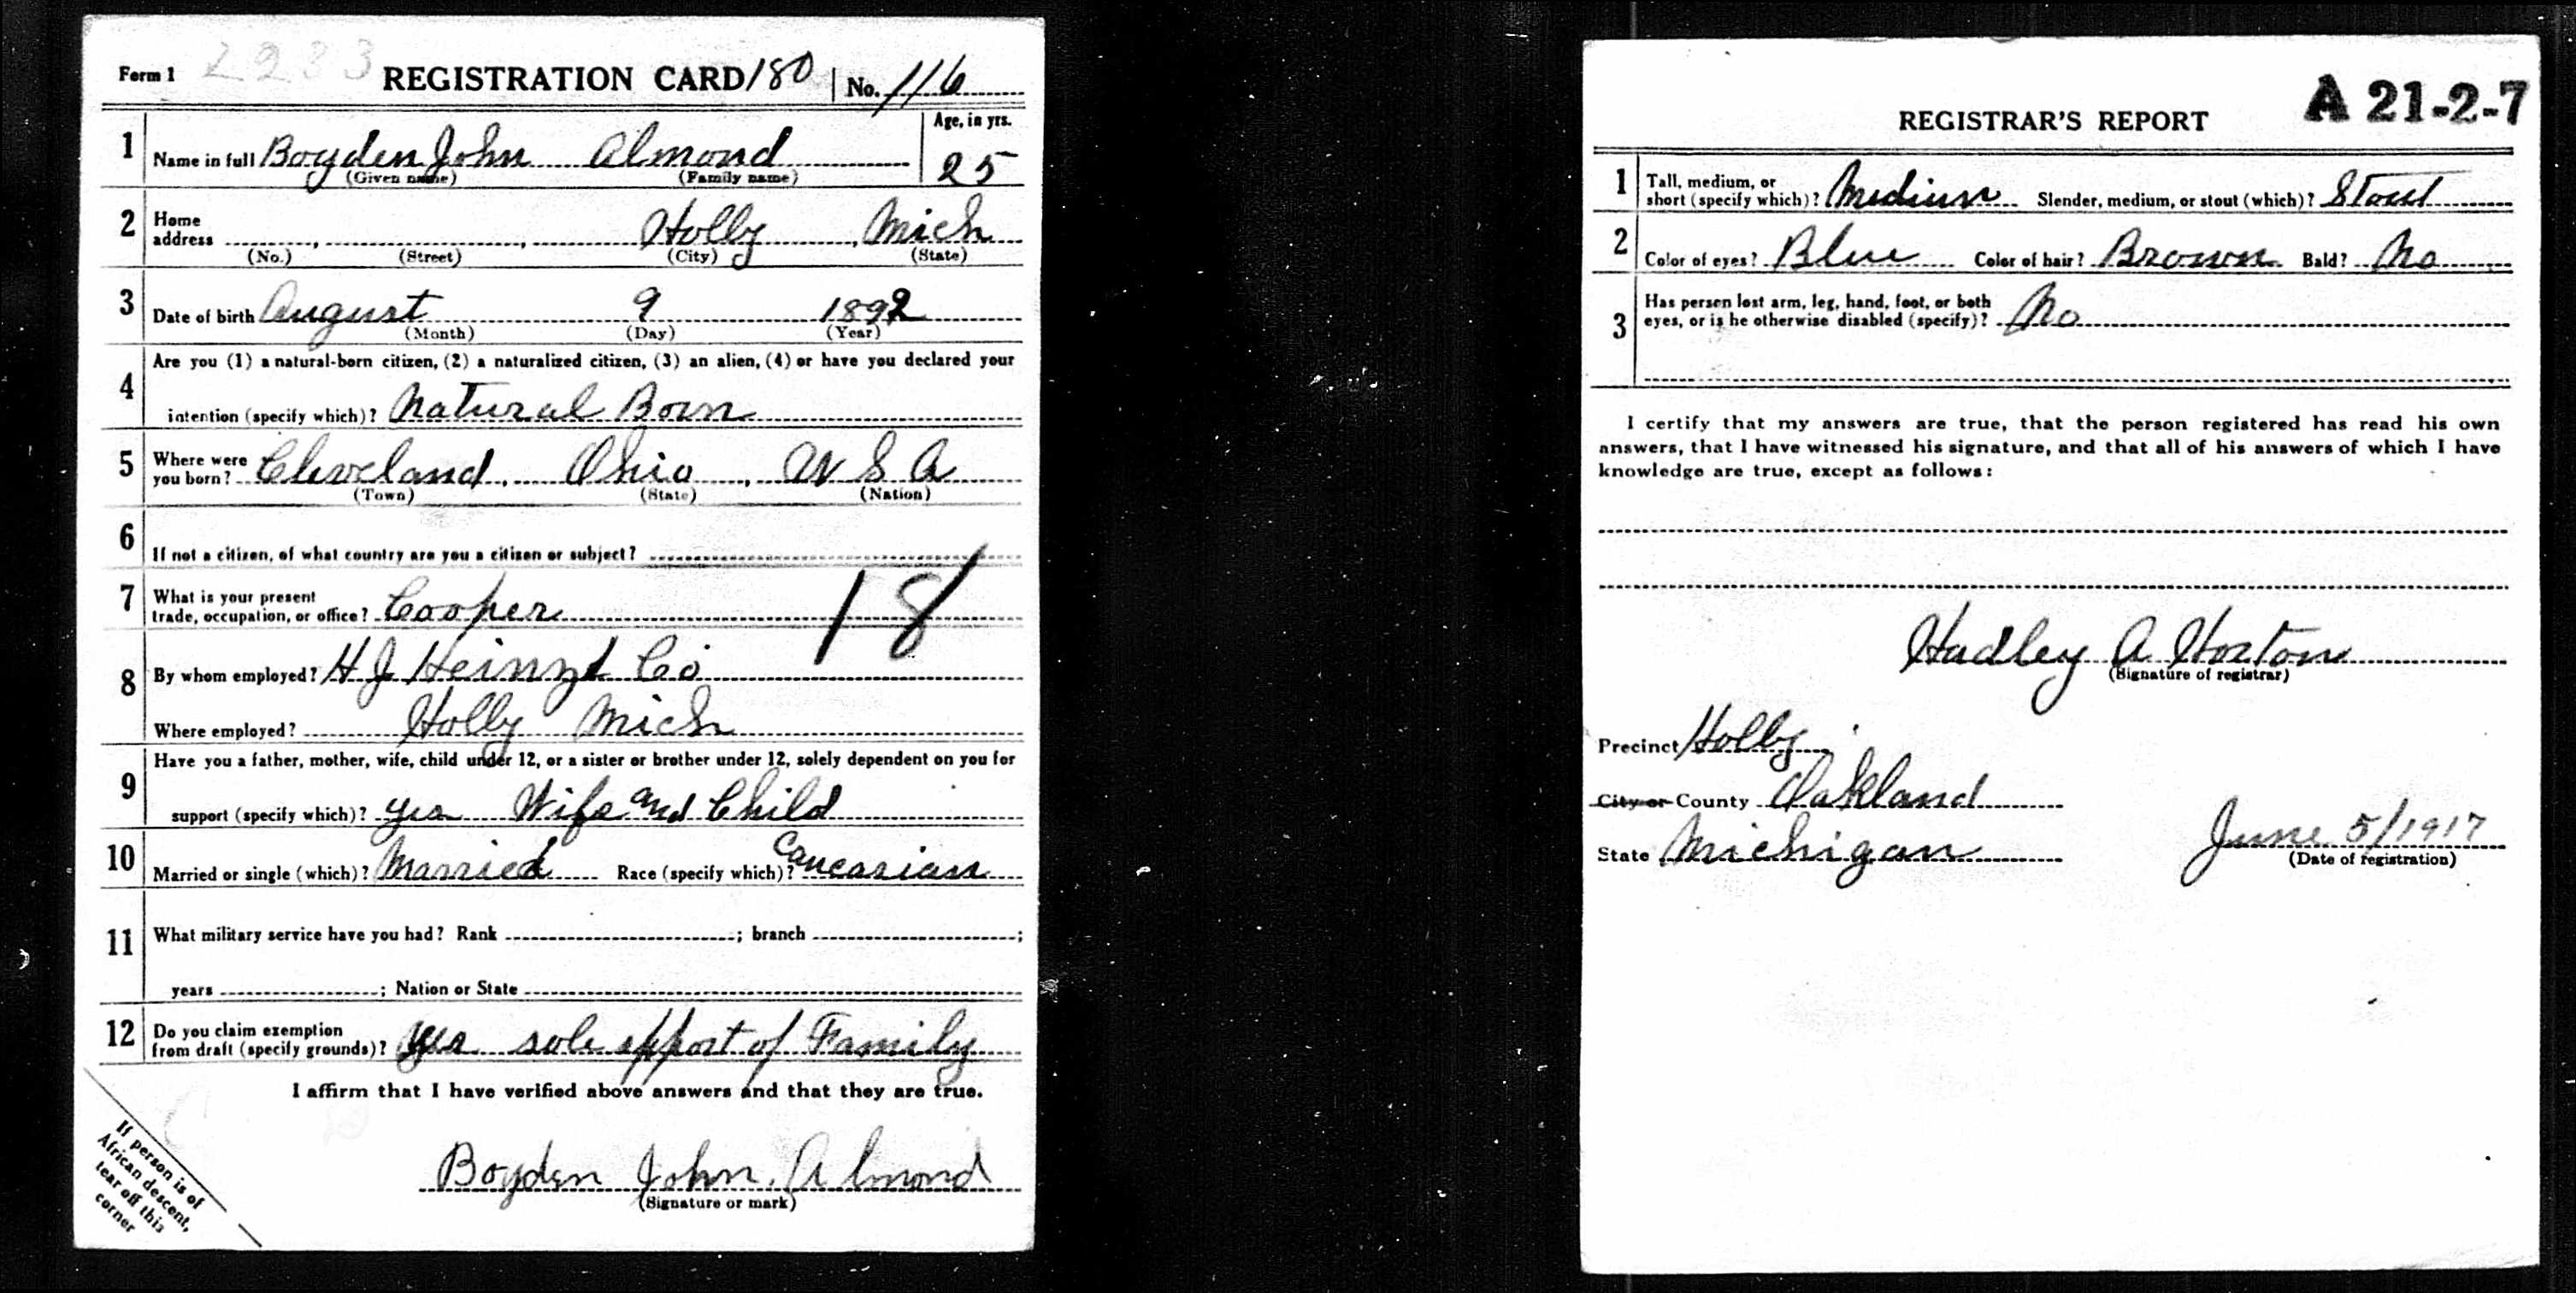 Form 1 2233 REGISTRATION CARD 180 No. 116
1 Name in full Boyden John Almond Age, in yrs. 25
(Given name) (Family name)
2 Home address Holly Mich
(No.) (Street) (City) (State)
3 Date of birth August 9 1892
(Month) (Day) (Year)
4 Are you (1) a natural-born citizen, (2) a naturalized citizen, (3) an alien, (4) or have you declared your
intention (specify which)? Natural Born
5 Where were you born? Cleveland, Ohio, U S A
(Town) (State) (Nation)
6 If not a citizen, of what country are you a citizen or subject?
7 What is your present
trade, occupation, or office? Cooper 18
8 By whom employed? H J Heinz Co
Where employed? Holly Mich
9 Have you a father, mother, wife, child under 12, or a sister or brother under 12, solely dependent on you for
support (specify which)? yes Wife and Child
10 Married or single (which)? Married Race (specify which)? Caucasian
11 What military service have you had? Rank ; branch ;
years ; Nation or State
12 Do you claim exemption
from draft (specify grounds)? yes sole support of Family
I affirm that I have verified above answers and that they are true.
Boyden John Almond
(Signature or mark)
If person is of
African descent,
tear off this
corner
A 21-2-7
REGISTRAR'S REPORT
1 Tall, medium, or
short (specify which)? Medium Slender, medium, or stout (which)? Stout
2 Color of eyes? Blue Color of hair? Brown Bald? No
3 Has person lost arm, leg, hand, foot, or both
eyes, or is he otherwise disabled (specify)? No
I certify that my answers are true, that the person registered has read his own
answers, that I have witnessed his signature, and that all of his answers of which I have
knowledge are true, except as follows:
Hadley A Horton
(Signature of registrar)
Precinct Holly
City or County Oakland
State Michigan June 5/1917
(Date of registration)